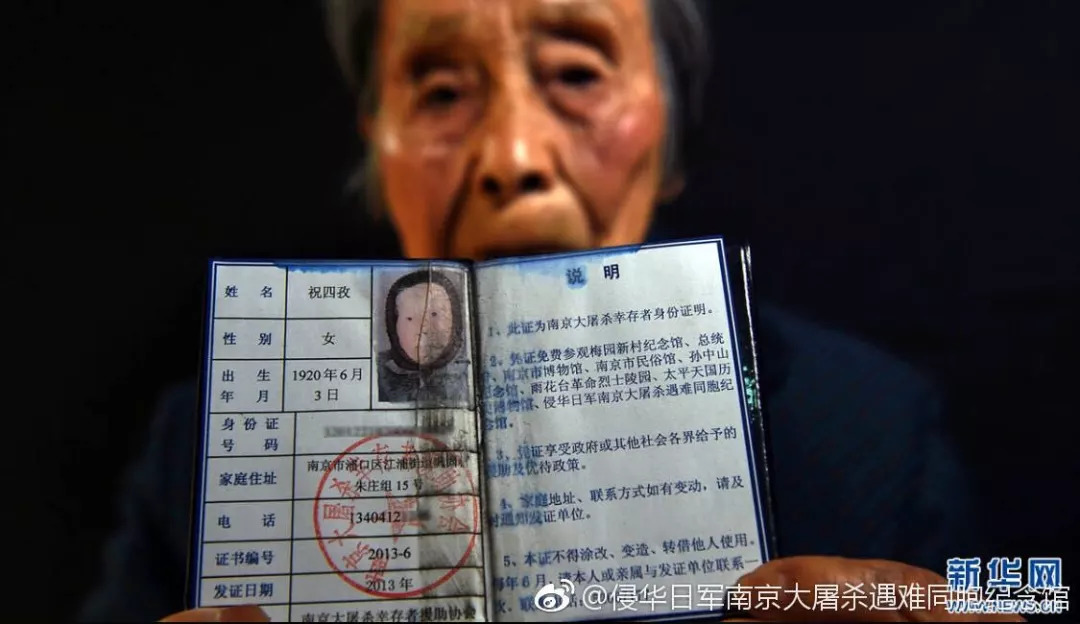 姓 名
祝四孜
性 别
女
出 生
年 月
1920年6月
3日
身 份 证
号 码
家庭住址
南京市浦口区江浦街道
朱庄组15号
电 话
1340412
证书编号
2013-6
发证日期
2013年
南京大屠杀幸存者援助协会
说 明
1、此证为南京大屠杀幸存者身份证明。
2、凭证免费参观梅园新村纪念馆、总统
、南京市博物馆、南京市民俗馆、孙中山
念馆、雨花台革命烈士陵园、太平天国历
博物馆、侵华日军南京大屠杀遇难同胞纪
念馆。
3、凭证享受政府或其他社会各界给予的
援助及优待政策。
4、家庭地址、联系方式如有变动,请及
时通知发证单位。
5、本证不得涂改、变造、转借他人使用。
每年6月,请本人或亲属与发证单位联系一
次,联
@侵华日军南京大屠杀遇难同胞纪念馆
新华网